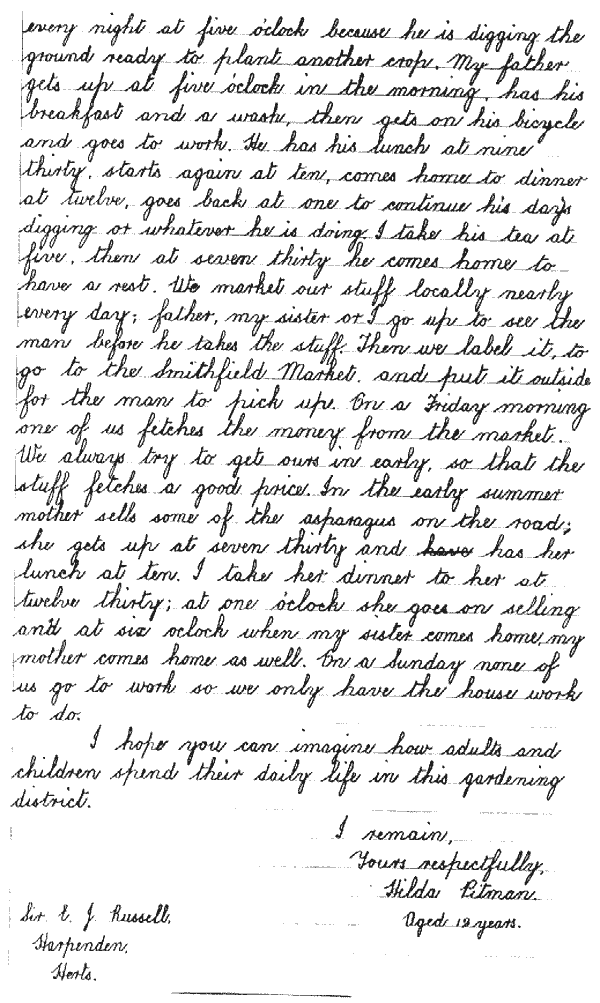 every night at five o'clock because he is digging the
ground ready to plant another crop. My father
gets up at five o'clock in the morning, has his
breakfast and a wash, then gets on his bicycle
and goes to work. He has his lunch at nine
thirty, starts again at ten, comes home to dinner
at twelve, goes back at one to continue his day's
digging or whatever he is doing. I take his tea at
five, then at seven thirty he comes home to
have a rest. We market our stuff locally nearly
every day; father, my sister or I go up to see the
man before he takes the stuff. Then we label it, to
go to the Smithfield Market, and put it outside
for the man to pick up. On a Friday morning
one of us fetches the money from the market.
We always try to get ours in early, so that the
stuff fetches a good price. In the early summer
mother sells some of the asparagus on the road;
she gets up at seven thirty and have has her
lunch at ten. I take her dinner to her at
twelve thirty; at one o'clock she goes on selling
and at six oclock when my sister comes home, my
mother comes home as well. On a Sunday none of
us go to work so we only have the house work
to do.
I hope you can imagine how adults and
children spend their daily life in this gardening
district.
I remain,
Yours respectfully,
Hilda Pitman.
Aged 12 years.
Sir E. J. Russell,
Harpenden,
Herts.